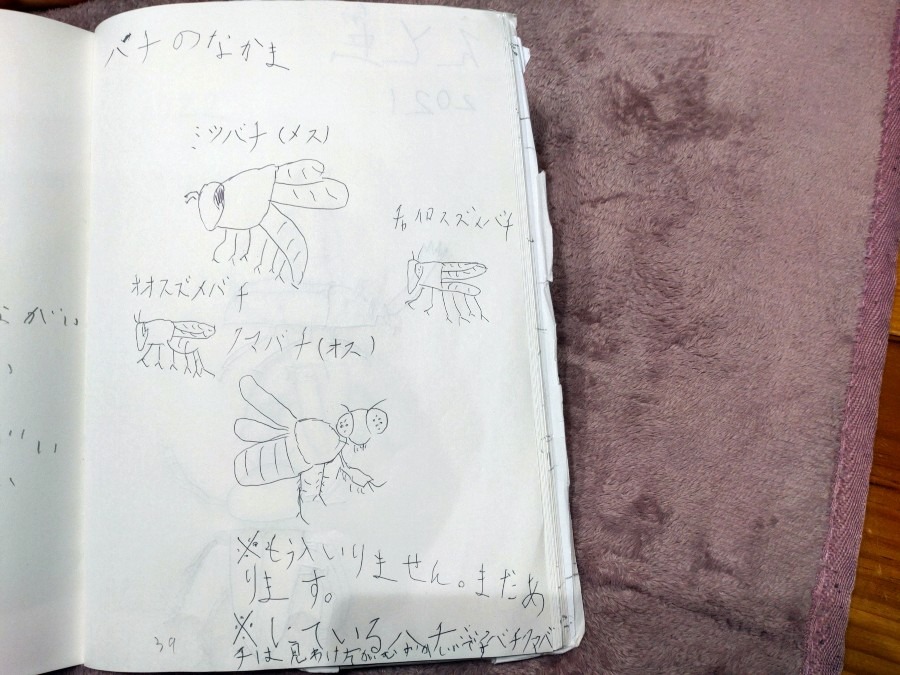 バチのなかま
ミツバチ(メス)
チャイロスズメバチ
オオスズメバチ
クマバチ(オス)
※もう入いりません。まだあ
ります。
※している
チは見わけ方が
39
2021
がい
い